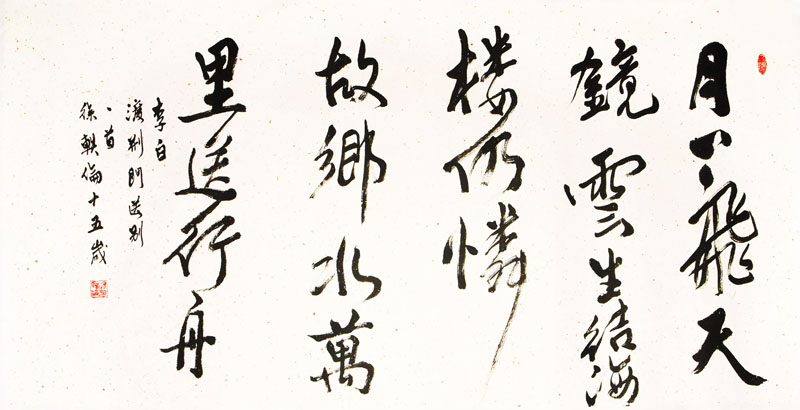 月下飛天
鏡雲生結海
楼仍憐
故鄉水萬
里送行舟
李白
渡荆門送别
一首
徐軼倫十五歲